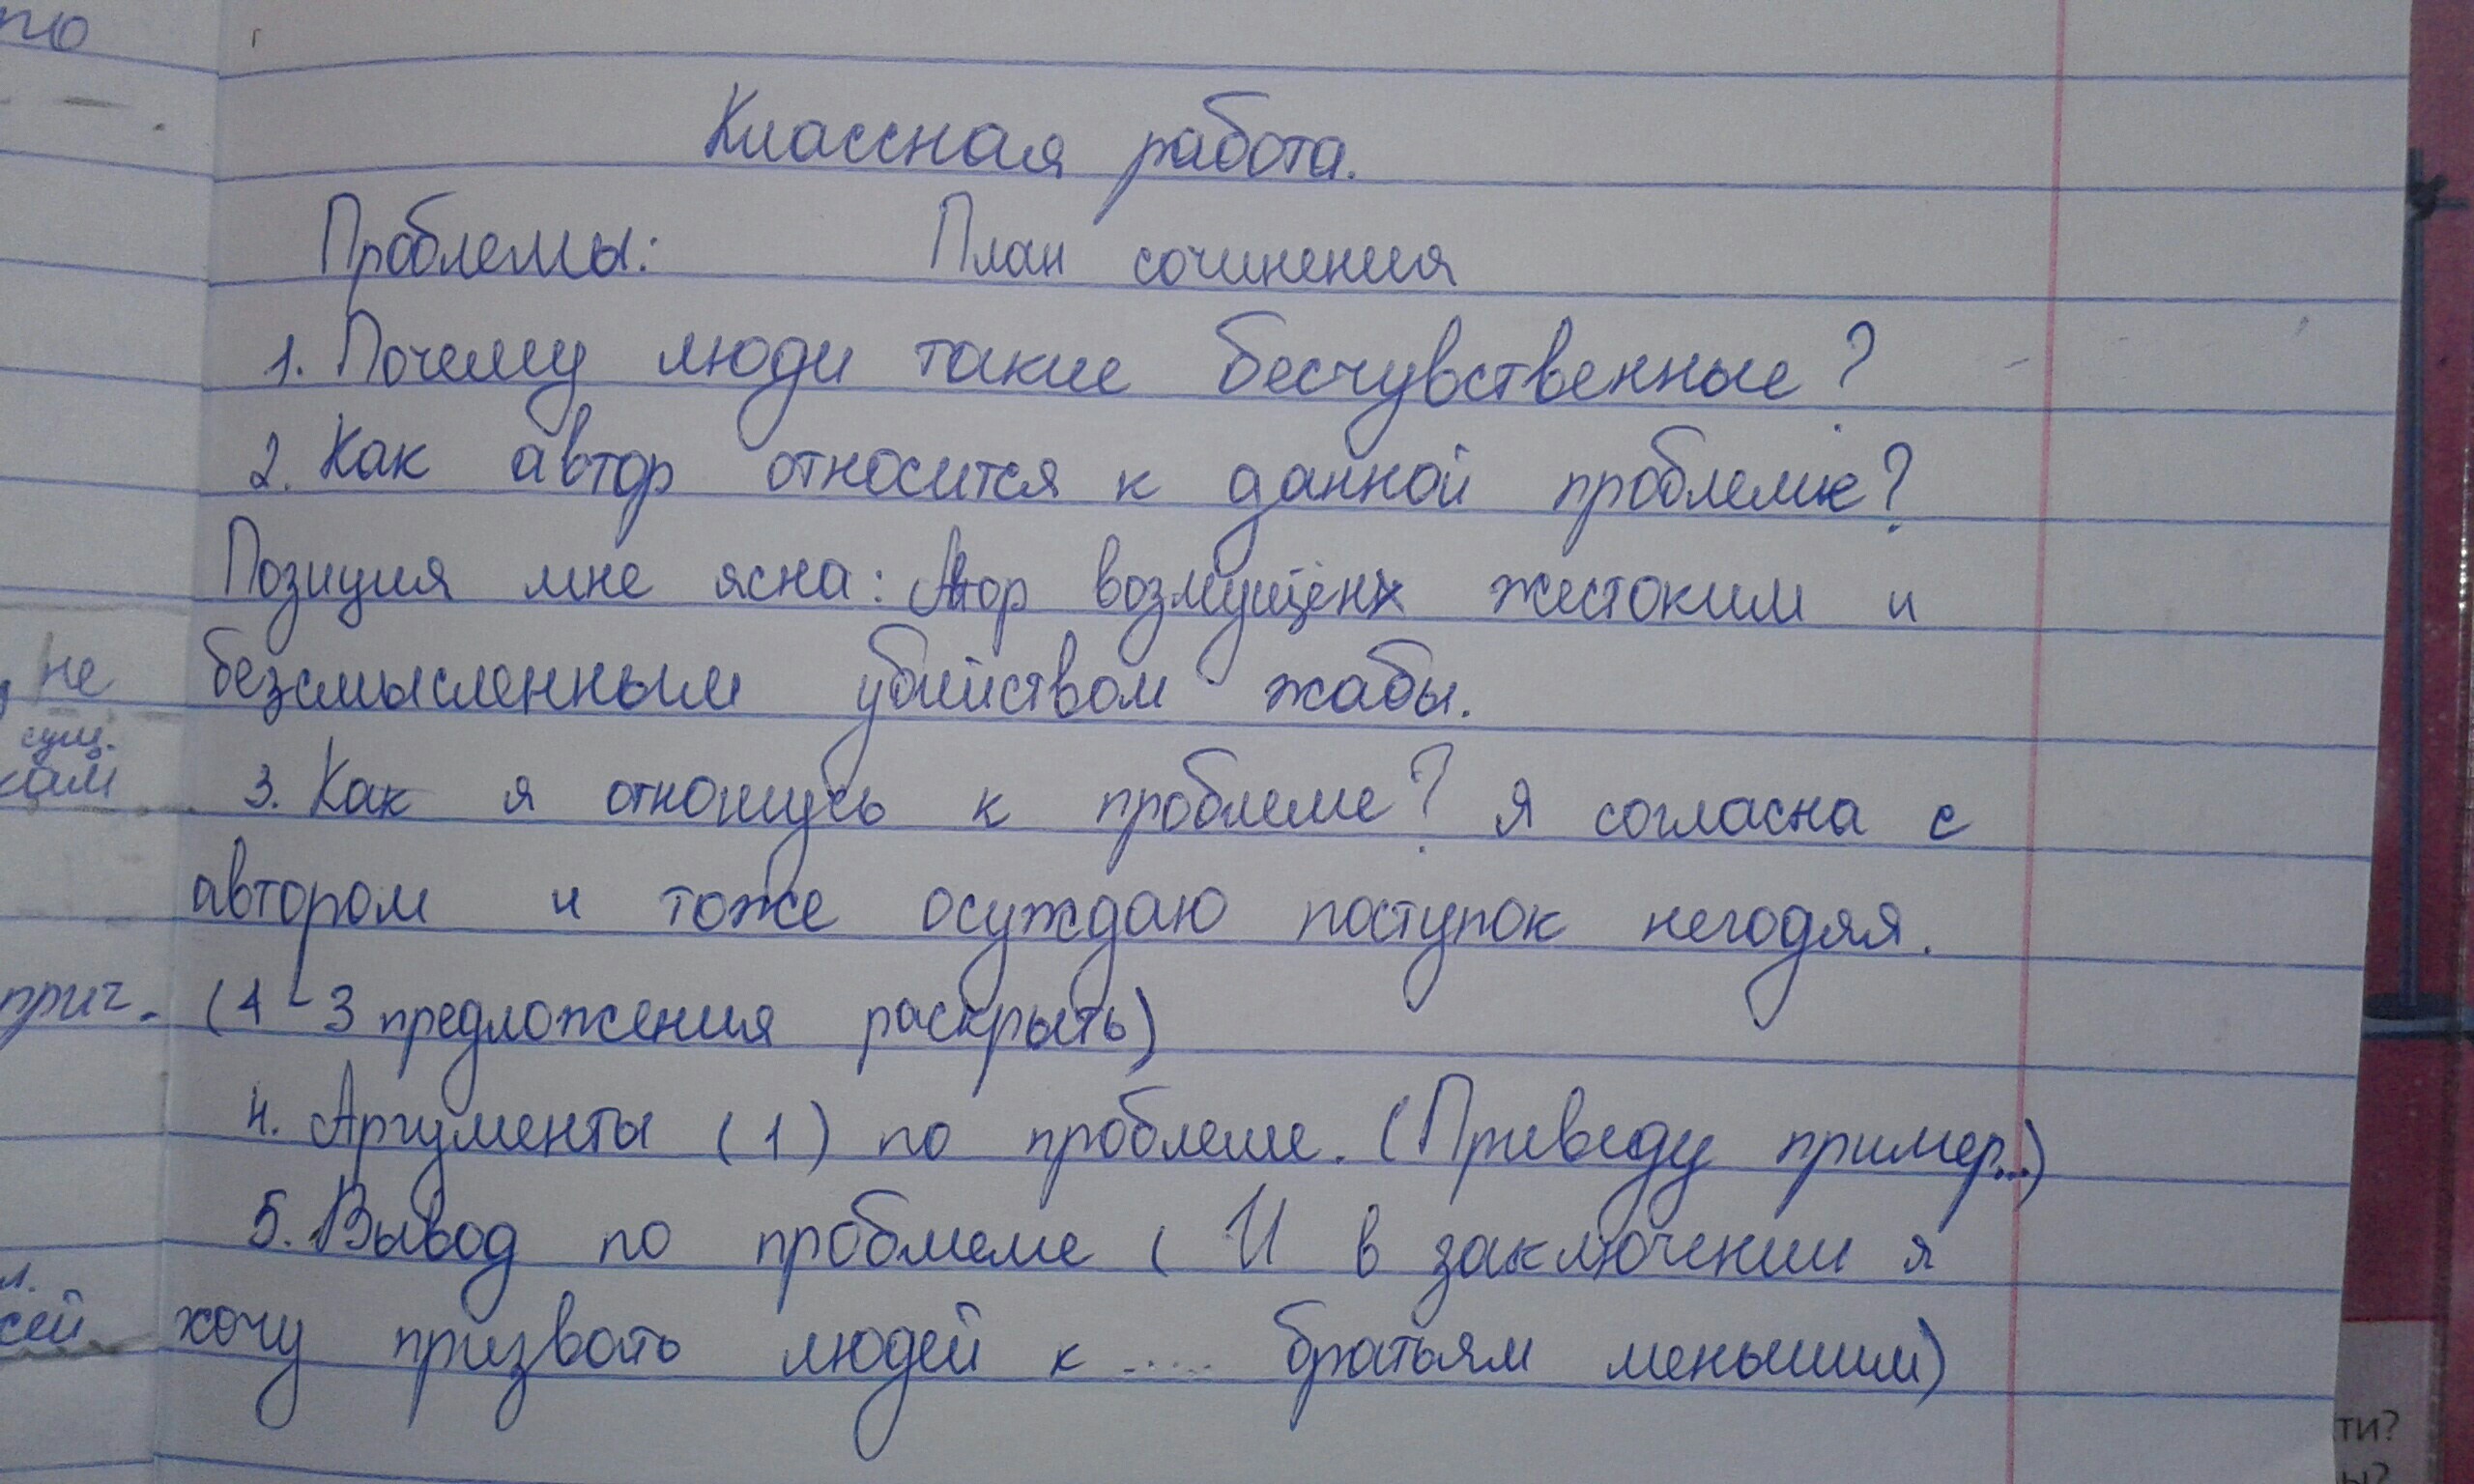 по
Классная работа.
Проблемы: План сочинения
1. Почему люди такие бесчувственные?
2. Как автор относится к данной проблеме?
Позиция мне ясна: Автор возмущён жестоким и
не
безсмысленным убийством жабы.
сущ.
3. Как я отношусь к проблеме? Я согласна с
автором и тоже осуждаю поступок негодяя.
прич.
(1-3 предложения раскрыть)
4. Аргументы (1) по проблеме. (Приведу пример...)
5. Вывод по проблеме ( И в заключении я
хочу призвать людей к ..... братьям меньшим)
ти?
ы?